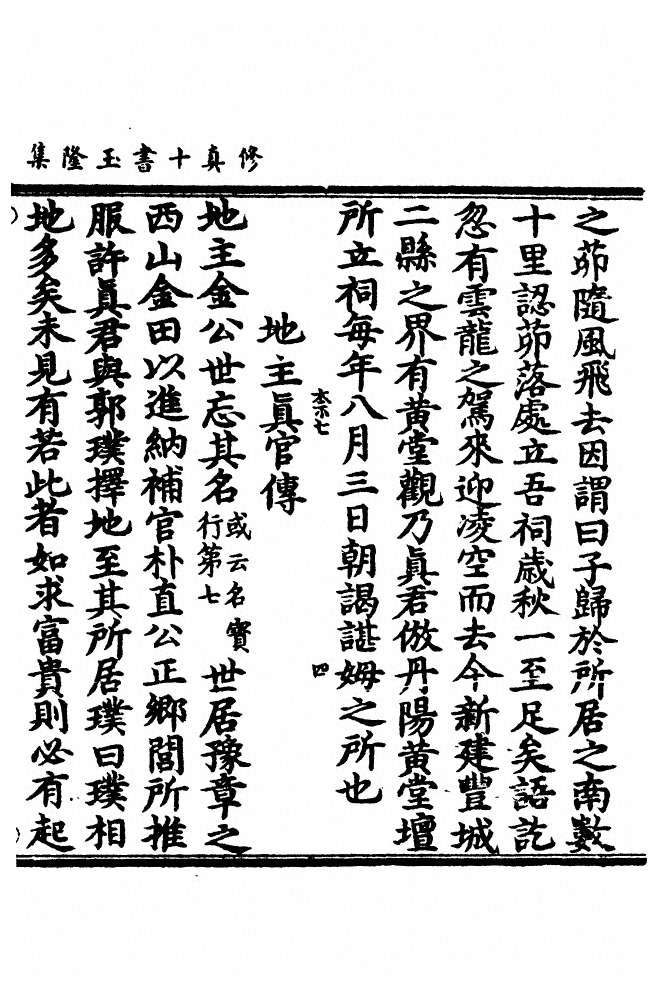 修真十書玉隆集
之茆隨風飛去因謂曰子歸於所居之南數
十里認茆落處立吾祠歲秋一至足矣語訖
忽有雲龍之駕來迎凌空而去今新建豐城
二縣之界有黄堂觀乃眞君倣丹陽黄堂壇
所立祠每年八月三日朝謁諶姆之所也
本不七
四
地主眞官傳
地主金公世忘其名或云名寳行第七世居豫章之
西山金田以進納補官朴直公正鄉閭所推
服許眞君與郭璞擇地至其所居璞曰璞相
地多矣未見有若此者如求富貴則必有起